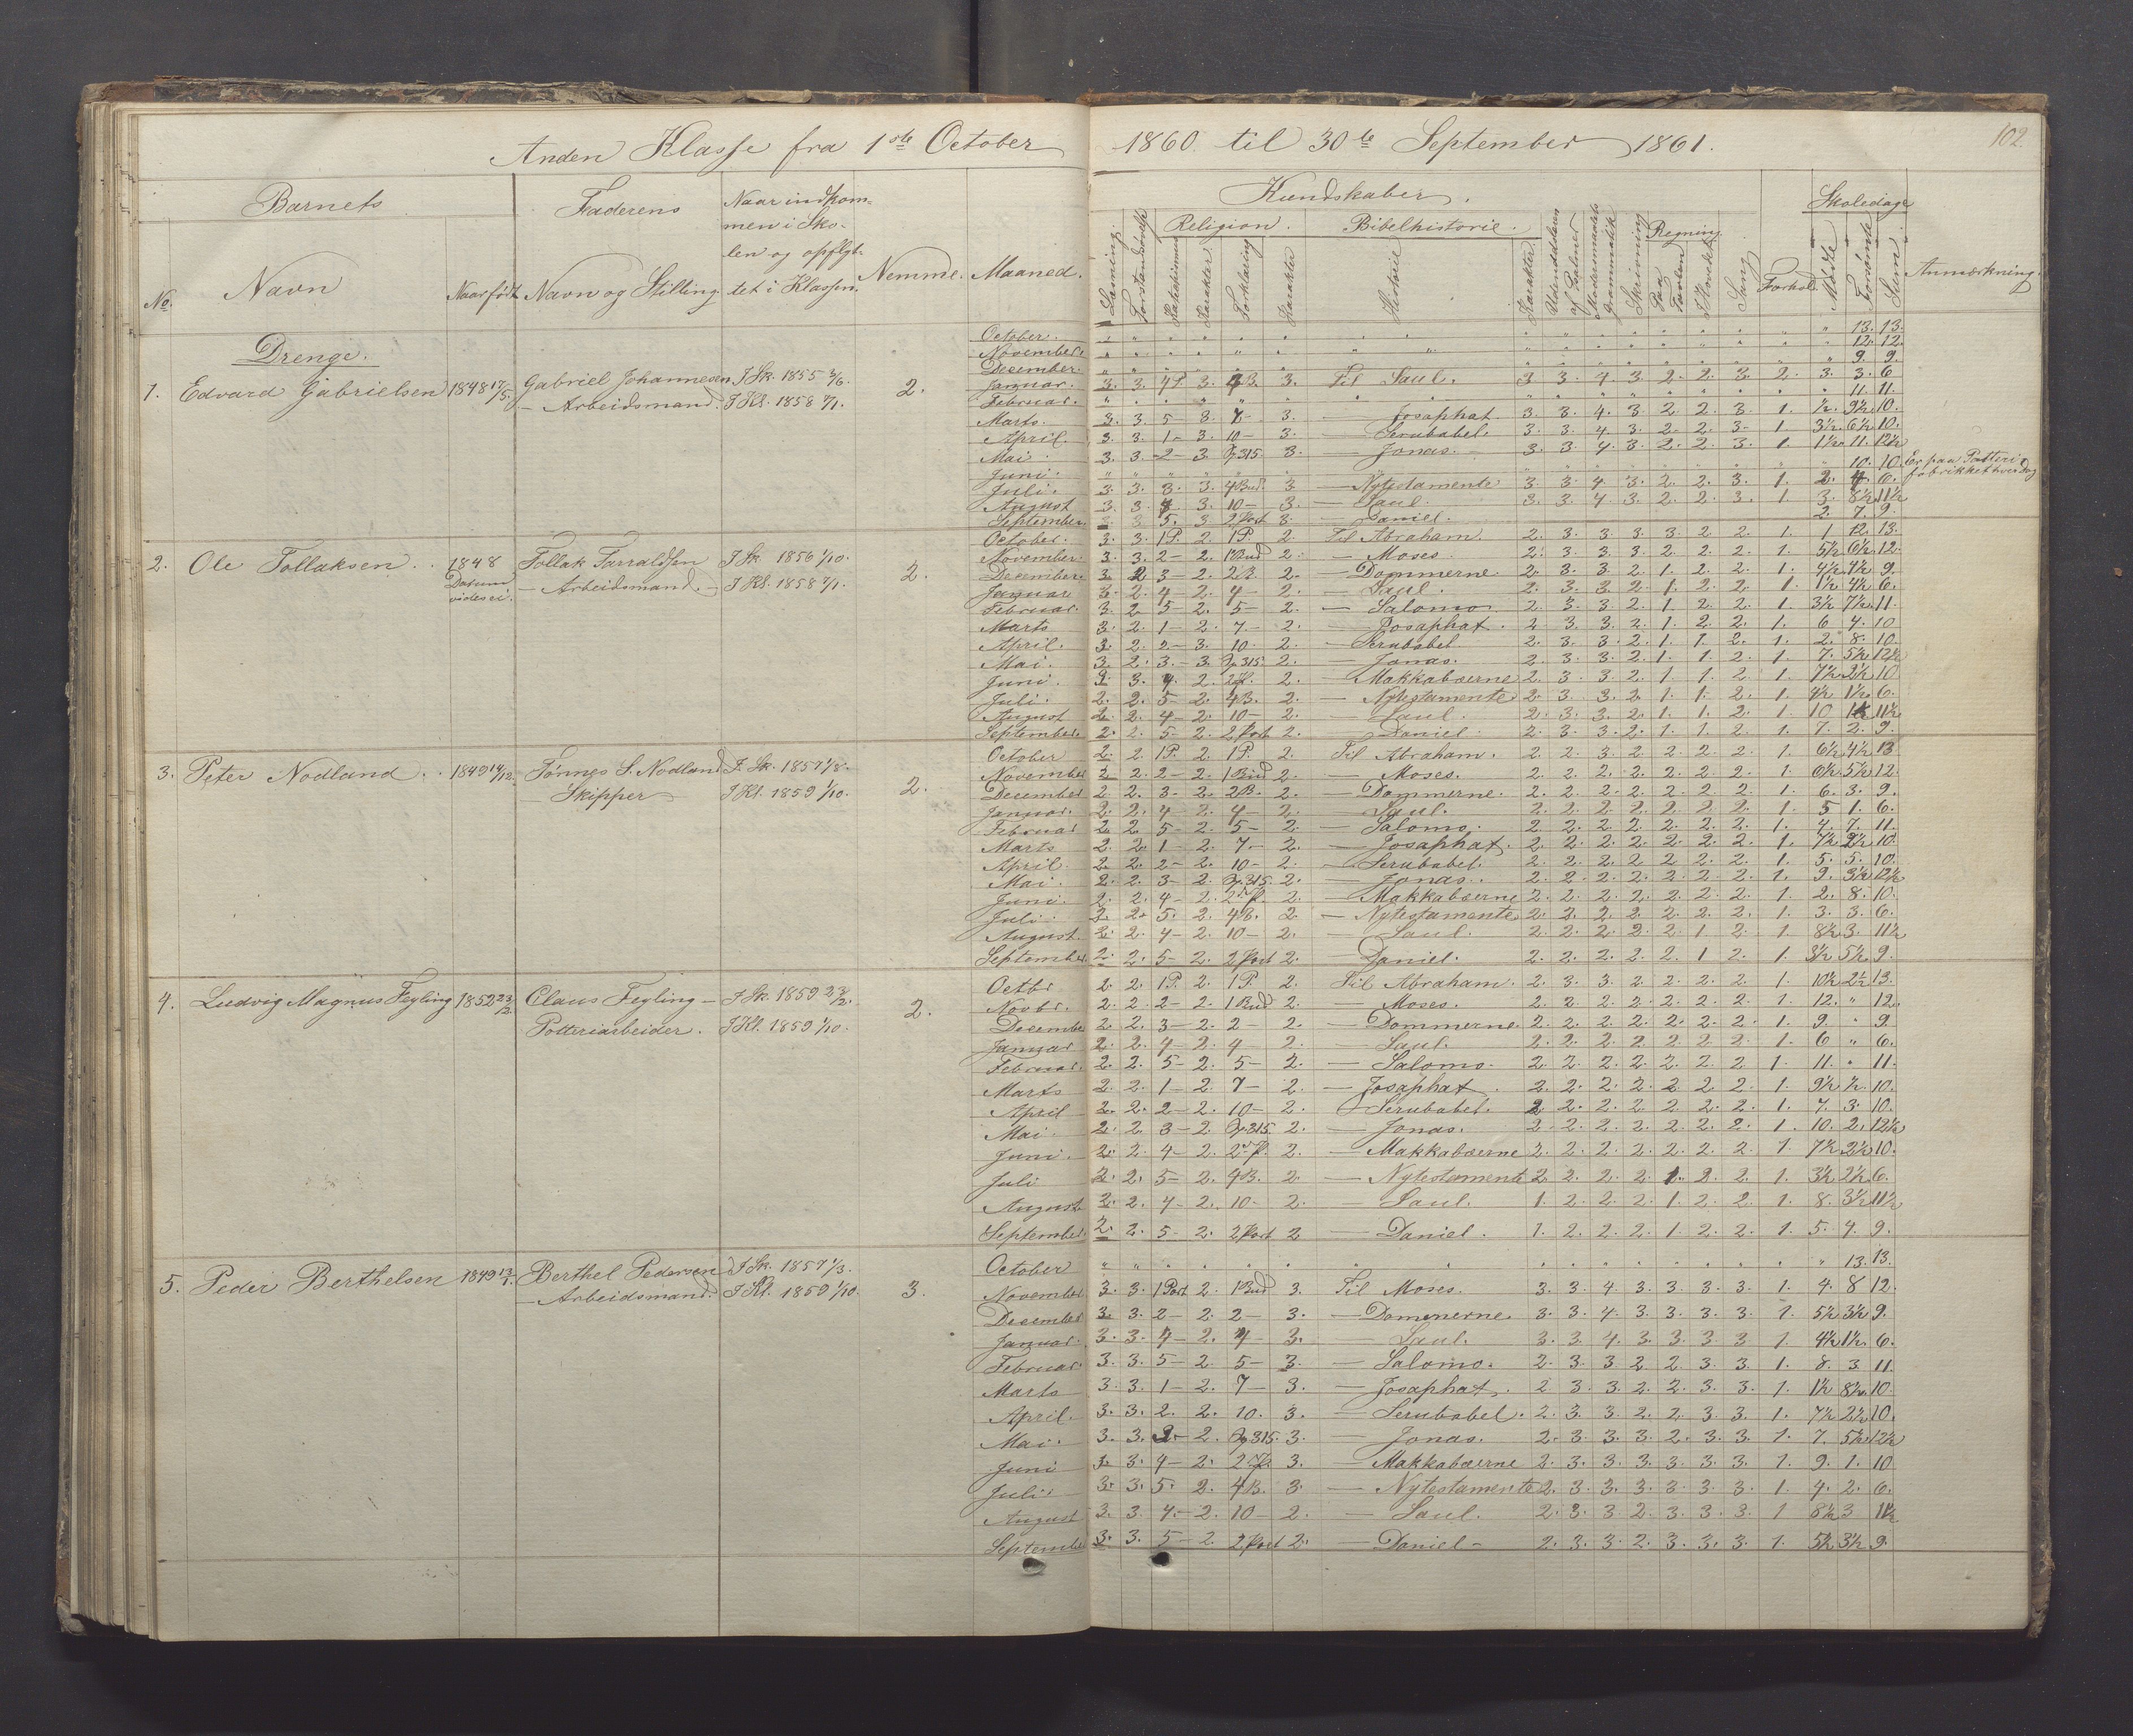 Anden Klasse fra 1ste October 1860 til 30te September 1861.
102.
Barnets
Faderens
Naar indkom-
men i Sko-
len og opflyt-
tet i Klassen.
Nemme.
Maaned.
No.
Navn
Naar født
Navn og Stilling
Kundskaber.
Læsning.
Religion.
Karakter
Forklaring
Karakter
Bibelhistorie.
Historie
Karakter
Udenadslæsn
af Psalmer
Modersmaalets
Grammatik
Skrivning
Regning.
Paa
Tavlen
Hovedet
Sang
Forhold
Skoledage
Mødte
Forsømte
Sum.
Anmærkning.
Drenge.
1. Edvard Gabrielsen 1848 17/5. Gabriel Johannesen I Sk. 1855
— Arbeidsmand. I Kl. 1858 7/1. 2.
October. 13. 13.
November. 12. 12.
December. 9. 9.
Januar. 3. 3. 4P. 3. 4B. 3. Til Saul. 3 3. 4. 3. 2. 2. 3. 2. 3. 3. 6
Februar. 11. 11.
Marts. 3. 3. 5 - 3. 7 - 3. — Josaphat. 3. 3. 4. 3. 2. 2. 3. 1. ½. 9½. 10.
April. 3. 3. 1 - 3. 10 - 3. — Serubabel. 3. 3. 4. 3. 2. 2. 3. 1 3½. 6½. 10.
Mai. 3. 3. 2 - 3. Sp 315. 3. — Jonas. 3. 3. 4. 3. 2. 2. 3. 1. 1½. 11. 12½
Juni. 10. 10. Er paa Potteri
fabrikket hver Dag
Juli. 3. 3. 3. 3. 4 Bud. 3 — Nytestamente 3 3. 4 3. 2. 2. 3. 1. 2. 4. 6.
August 3. 3. 4 3. 10 - 3. — Saul. 3. 3. 4. 3. 2. 2. 3. 1 3. 8½. 11½
September. 5. 3 2 Part 3. — Daniel. 2. 7. 9.
2. Ole Tollaksen. 1848 Tollak Tarraldsen I Sk 1856 1/10.
Datum
vides ei. — Arbeidsmand. — I Kl. 1858 7/1. 2.
October. 3. 3. 1P. 2. 1P. 2. Til Abraham. 2. 3. 3. 3. 3. 2. 2. 1. 1 12. 13.
November. 3. 3. 2 - 2. 1 Bud 2. — Moses. 2. 3. 3. 3. 2. 2. 2. 1. 5½ 6½. 12.
December. 3. 2 3 - 2. 2B. 2. — Dommerne. 2. 3. 3. 2. 1. 2. 2. 1. 4½. 4½ 9.
Januar 3. 2. 4 - 2. 4 - 2. — Saul. 2. 3. 3. 2. 1. 2. 2. 1. 1½ 4½. 6.
Februar. 3. 2 5 - 2. 5 - 2. — Salomo. 2. 3. 3 2. 1. 2. 2. 1. 3½ 7½. 11.
Marts 3. 2. 1 - 2. 7 - 2. — Josaphat. 2 3. 3. 2. 1. 2. 2. 1. 6 4. 10
April. 3. 2. 2 - 3. 10. - 2. — Serubabel 2. 3. 3. 2. 1. 1. 2. 1. 2. 8. 10.
Mai. 3. 2. 3. - 3. Sp 315. 2. — Jonas. 2. 3. 3. 2. 1. 1. 2. 1. 7. 5½ 12½
Juni. 3. 3. 4. 2. 2 P. 2. — Makkabæerne 2. 3. 3. 2. 1. 1. 2. 1. 7½ 2½ 10.
Juli. 2. 2. 5 - 2. 4B. 2. — Nytestamente 2. 3. 3. 2. 1. 1. 2. 1. 4½ 1½. 6.
August 2. 2. 4 - 2. 10 - 2. — Saul. 2. 3. 3. 2. 1. 1. 2. 1. 10 1½ 11½
September. 2. 2. 5 - 2. 2 Part 2. — Daniel. 2. 3. 3. 2. 1. 1. 2. 1. 7. 2. 9.
3. Peter Nodland. 1849 14/12. Tønnes S. Nodland I Sk. 1857 1/8.
— Skipper I Kl. 1859 1/10. 2.
October 2. 2. 1P. 2. 1P. 2. Til Abraham. 2. 2. 3. 2. 2. 2. 2. 1. 6½ 4½ 13
November 2. 2. 2 - 2. 1 Bud 2. — Moses. 2. 2. 2. 2. 2. 2. 2. 1. 6½. 5½ 12.
December 2. 2. 3 - 2. 2B. 2. — Dommerne. 2. 2. 2. 2. 2. 2. 2. 1. 6. 3. 9.
Januar. 2. 2. 4 - 2. 4 - 2. — Saul. 2. 2. 2. 2. 2. 2. 2. 1. 5 1. 6.
Februar 2. 2 5 - 2. 5 - 2. — Salomo. 2. 2. 2. 2. 2. 2. 2. 1. 4. 7. 11.
Marts 2. 2. 1 - 2. 7 - 2. — Josaphat. 2. 2. 2. 2. 2. 2. 2. 1. 7½ 2½ 10.
April 2. 2. 2 - 2. 10 - 2. — Serubabel. 2. 2. 2. 2. 2. 2. 2. 1. 5. 5. 10.
Mai. 2. 2. 3 - 2. Sp 315. 2. — Jonas. 2. 2. 2. 2. 2. 2. 2. 1. 9. 3½ 12½
Juni. 2. 2. 4 - 2. 2 P. 2. — Makkabæerne 2. 2. 2. 2. 2. 2. 2. 1. 2. 8. 10.
Juli. 2. 2. 5. 2. 4B. 2. — Nytestamente 2. 2. 2. 2. 2. 2. 2. 1. 3. 3. 6.
August. 2. 2. 4 - 2. 10 - 2. — Saul. 2. 2. 2. 2. 2. 1 2. 1. 8½. 3. 11½
September. 2. 2. 5 - 2. 2 Part 2. — Daniel. 2. 2. 2. 2. 2. 1 2. 1. 3½ 5½. 9.
4. Ludvig Magnus Fegling 1852 23/2. Claus Fegling — I Sk. 1859 23/2.
Potteriarbeider. I Kl. 1859 1/10. 2.
Octbr 2. 2. 1P. 2. 1P. 2. Til Abraham. 2. 3. 3. 2. 2. 2. 2. 1. 10½ 2½ 13.
Novbr. 2. 2. 2 - 2. 1 Bud 2. — Moses. 2. 2. 2. 2. 2. 2. 2. 1. 12. " 12.
December 2. 2. 3 - 2. 2 - 2. — Dommerne. 2. 2. 2. 2. 2. 2. 2. 1. 9. " 9.
Januar 2. 2. 4 - 2. 4 - 2. — Saul. 2. 2. 2. 2. 2. 2. 2. 1. 6 " 6.
Februar. 2. 2. 5 - 2. 5 - 2. — Salomo. 2. 2. 2. 2. 2. 2. 2 1. 11. " 11.
Marts 2. 2. 1 - 2. 7 - 2. — Josaphat. 2. 2. 2. 2. 2. 2. 2. 1. 9½ ½. 10.
April 2. 2. 2 - 2. 10 - 2. — Serubabel. 2. 2. 2. 2. 2. 2. 2. 1. 7. 3. 10.
Mai. 2. 2. 3 - 2. Sp 315. 2. — Jonas. 2. 2. 2. 2. 2. 2. 2. 1. 10. 2. 12½
Juni. 2. 2. 4 - 2. 2 P. 2. — Makkabæerne 2. 2. 2. 2. 2. 2. 2. 1. 7½ 2½ 10.
Juli 2. 2. 5 - 2. 4B. 2. — Nytestamente 2. 2. 2. 2. 1. 2. 2. 1. 3½ 2½ 6.
August 2. 2. 4 - 2. 10 - 2. — Saul. 1. 2. 2. 2. 1. 2. 2. 1. 8. 3½ 11½
September. 2. 2. 5 - 2. 2 Part 2 — Daniel. 1. 2. 2. 2. 1. 2. 2. 1. 5. 4. 9.
5. Peder Berthelsen 1849 13/1. Berthel Pedersen I Sk. 1857 1/3.
— Arbeidsmand. I Kl. 1859 1/10. 3.
October " 13. 13.
November 3. 3. 1 Part 2. 1 Bud 3. Til Moses. 3. 3. 4 3. 3. 3. 3. 1. 4. 8 12.
December 3. 3. 2 - 2. 2 - 3. — Dommerne. 3. 3. 4. 3. 3. 3. 3. 1. 5½ 3½ 9.
Januar. 3. 3. 4 - 2. 4 - 3. — Saul. 3. 3. 4. 3. 3. 3. 3 1. 4½ 1½. 6.
Februar. 3. 3. 5 - 2. 5 - 3. — Salomo. 2. 3. 3. 2 2. 3. 3. 1. 8. 3. 11.
Marts 3. 3. 1 - 2. 7 - 3. — Josaphat. 2 3. 3. 2. 2. 3. 3. 1. 1½ 8½. 10.
April. 3. 3. 2. 2. 10. 3. — Serubabel. 2. 3. 3 2. 2. 3. 3. 1. 7½ 2½ 10.
Mai. 3. 3. 3 - 2. Sp 315. 3. — Jonas. 2. 3. 3. 3. 2. 3. 3. 1. 7. 5½ 12½
Juni 3. 3. 4 - 2. 2 P. 3. — Makkabæerne 2. 3. 3. 3. 3. 3. 3. 1. 9. 1. 10
Juli. 3. 3. 5. 2. 4B. 3. — Nytestamente 2. 3. 3. 3. 3. 3. 3. 1. 4. 2. 6.
August 3. 3. 4. - 2. 10 - 2. — Saul. 2. 3. 3 2. 3. 3. 3. 1 8½ 3 11½
September 3. 3. 5 - 2 2 Part 2. — Daniel - 2. 3. 3. 2. 3. 3. 3. 1. 5½ 3½ 9.